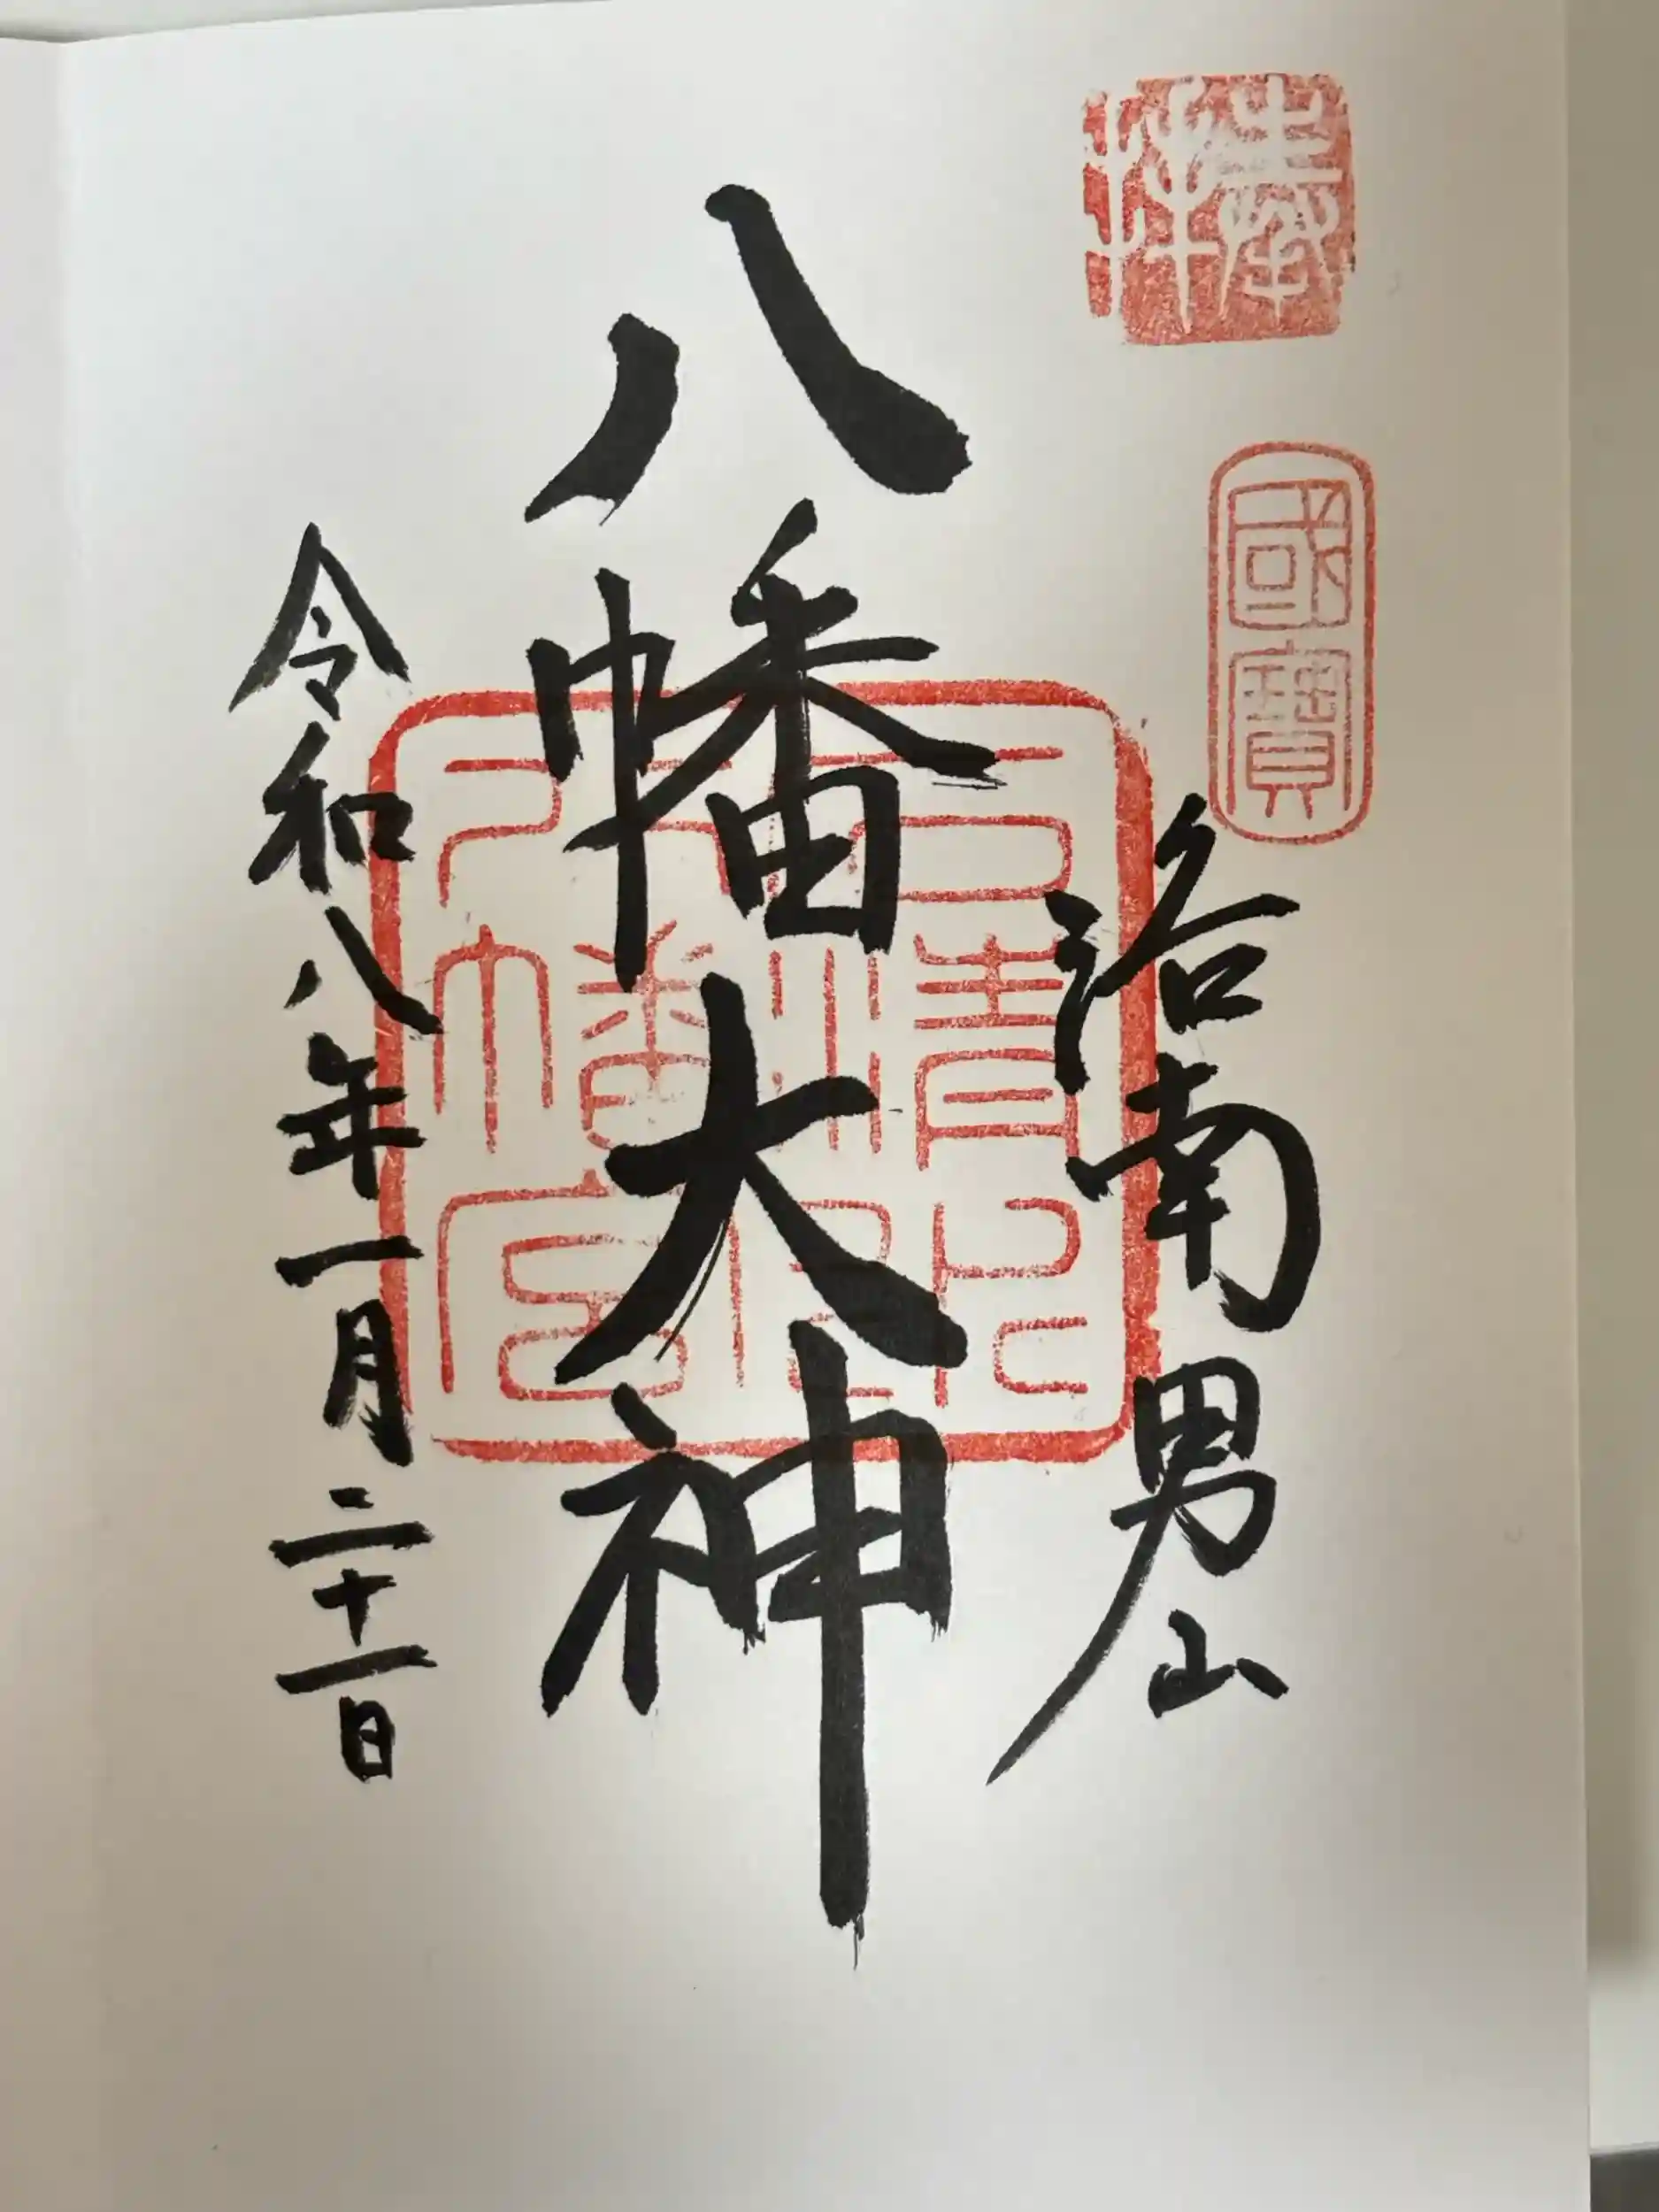 奉拝
國寶
洛南男山
八幡大神
石清水八幡宮
令和八年一月二十一日